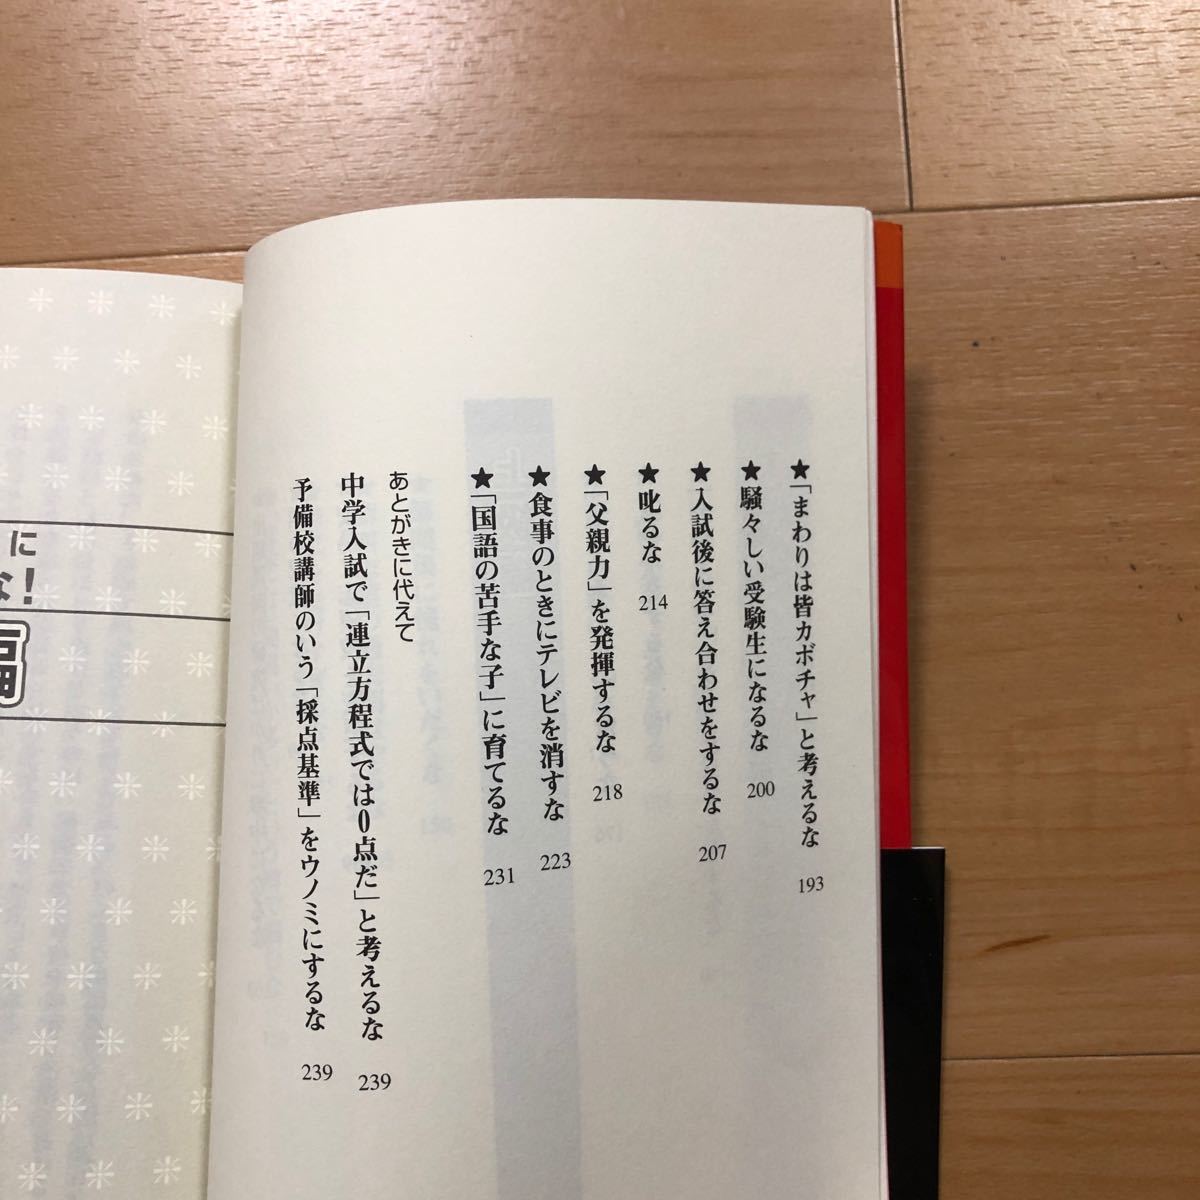 ★「まわりは皆カボチャ」と考えるな 193
★騒々しい受験生になるな 200
★入試後に答え合わせをするな 207
★叱るな 214
★「父親力」を発揮するな 218
★食事のときにテレビを消すな 223
★「国語の苦手な子」に育てるな 231
あとがきに代えて
中学入試で「連立方程式では0点だ」と考えるな 239
予備校講師のいう「採点基準」をウノミにするな 239
に
な!
編